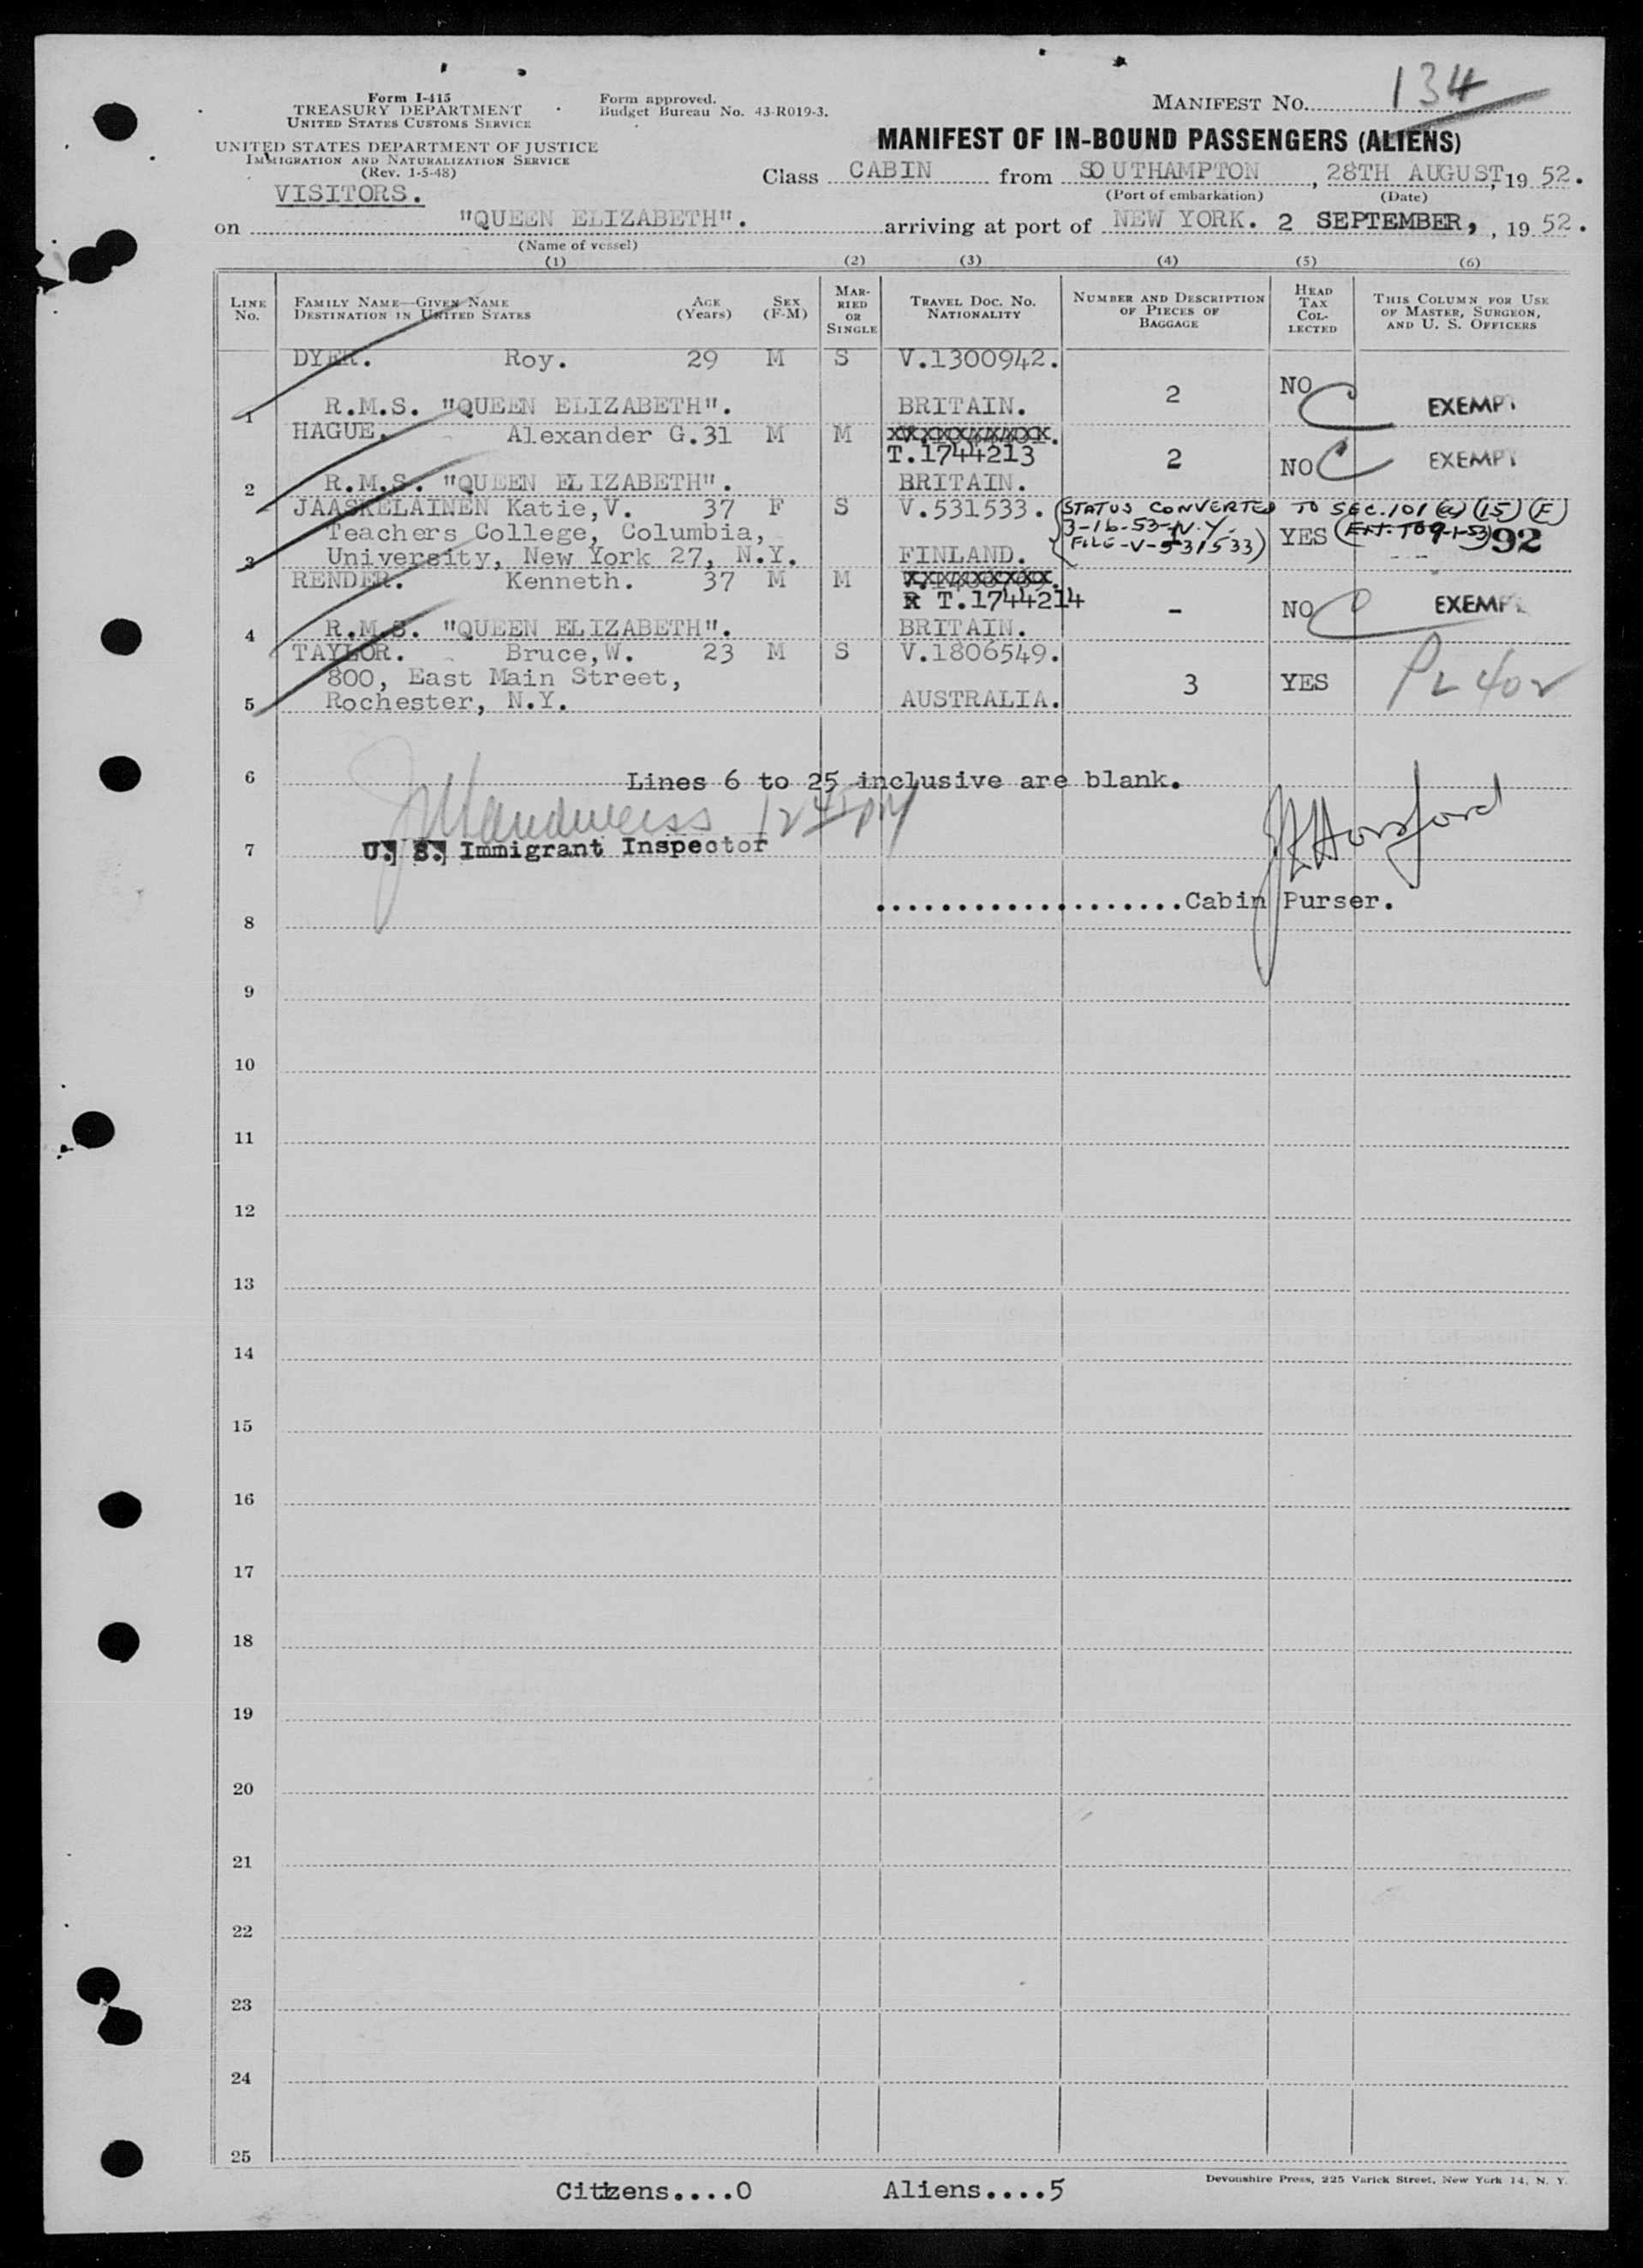 Form I-415
TREASURY DEPARTMENT
UNITED STATES CUSTOMS SERVICE
UNITED STATES DEPARTMENT OF JUSTICE
IMMIGRATION AND NATURALIZATION SERVICE
(Rev. 1-5-48)
VISITORS.
Form approved.
Budget Bureau No. 43-R019-3.
MANIFEST NO. 134
MANIFEST OF IN-BOUND PASSENGERS (ALIENS)
Class CABIN from SOUTHAMPTON, 28TH AUGUST, 19 52.
(Port of embarkation) (Date)
on "QUEEN ELIZABETH". arriving at port of NEW YORK. 2 SEPTEMBER, , 19 52.
(Name of vessel)
(1) (2) (3) (4) (5) (6)
LINE NO. FAMILY NAME—GIVEN NAME DESTINATION IN UNITED STATES AGE (Years) SEX (F-M) MARRIED OR SINGLE TRAVEL DOC. NO. NATIONALITY NUMBER AND DESCRIPTION OF PIECES OF BAGGAGE HEAD TAX COLLECTED THIS COLUMN FOR USE OF MASTER, SURGEON, AND U. S. OFFICERS
DYER. Roy. 29 M S V.1300942.
1 R.M.S. "QUEEN ELIZABETH". BRITAIN. 2 NO C EXEMPT
HAGUE. Alexander G. 31 M M
T.1744213
2 R.M.S. "QUEEN ELIZABETH". BRITAIN. 2 NO C EXEMPT
JAASKELAINEN Katie,V. 37 F S V.531533. (STATUS CONVERTED TO SEC.101 (a) (15) (F)
Teachers College, Columbia, 3-16-53-N.Y.
3 University, New York 27, N.Y. FINLAND. FILE-V-531533) YES (EXT. TO 9-1-53) 92
RENDER. Kenneth. 37 M M
T.1744214
4 R.M.S. "QUEEN ELIZABETH". BRITAIN. - NO C EXEMPT
TAYLOR. Bruce,W. 23 M S V.1806549.
800, East Main Street,
5 Rochester, N.Y. AUSTRALIA. 3 YES PL 402
6 Lines 6 to 25 inclusive are blank.
7 U. S. Immigrant Inspector
8 ...................Cabin Purser.
9
10
11
12
13
14
15
16
17
18
19
20
21
22
23
24
25
Citizens....0 Aliens....5
Devonshire Press, 225 Varick Street, New York 14, N. Y.